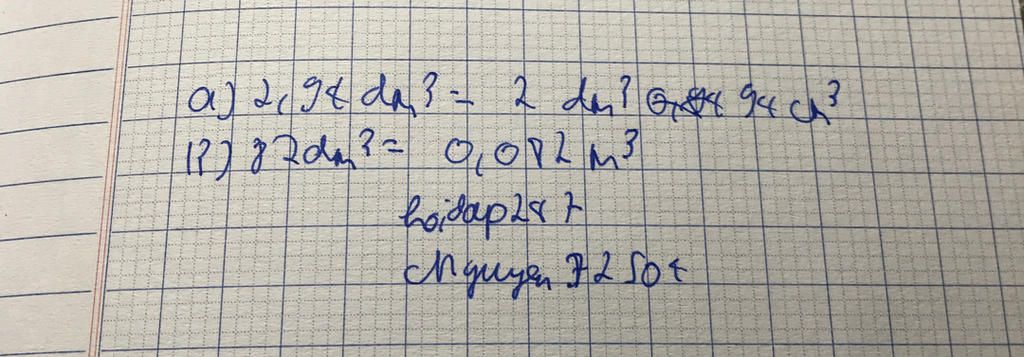 a) 2,98 dm³ = 2 dm³ 98 cm³
B) 82dm³ = 0,082 m³
hoidap287
Nguyen 72508